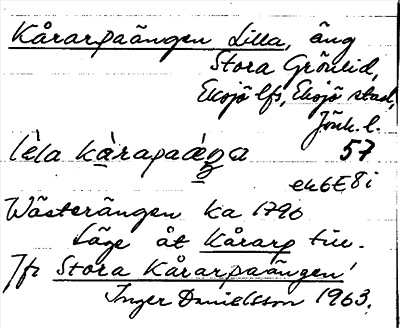 Kårarpaängen Lilla, äng
Stora Grönlid,
Eksjö lfs, Eksjö stad,
Jönk. l.
57
ek6E8i
Wästerängen ka 1790
Läge åt Kårarp till.
Jfr Stora Kårarpaängen!
Inger Danielsson 1963.